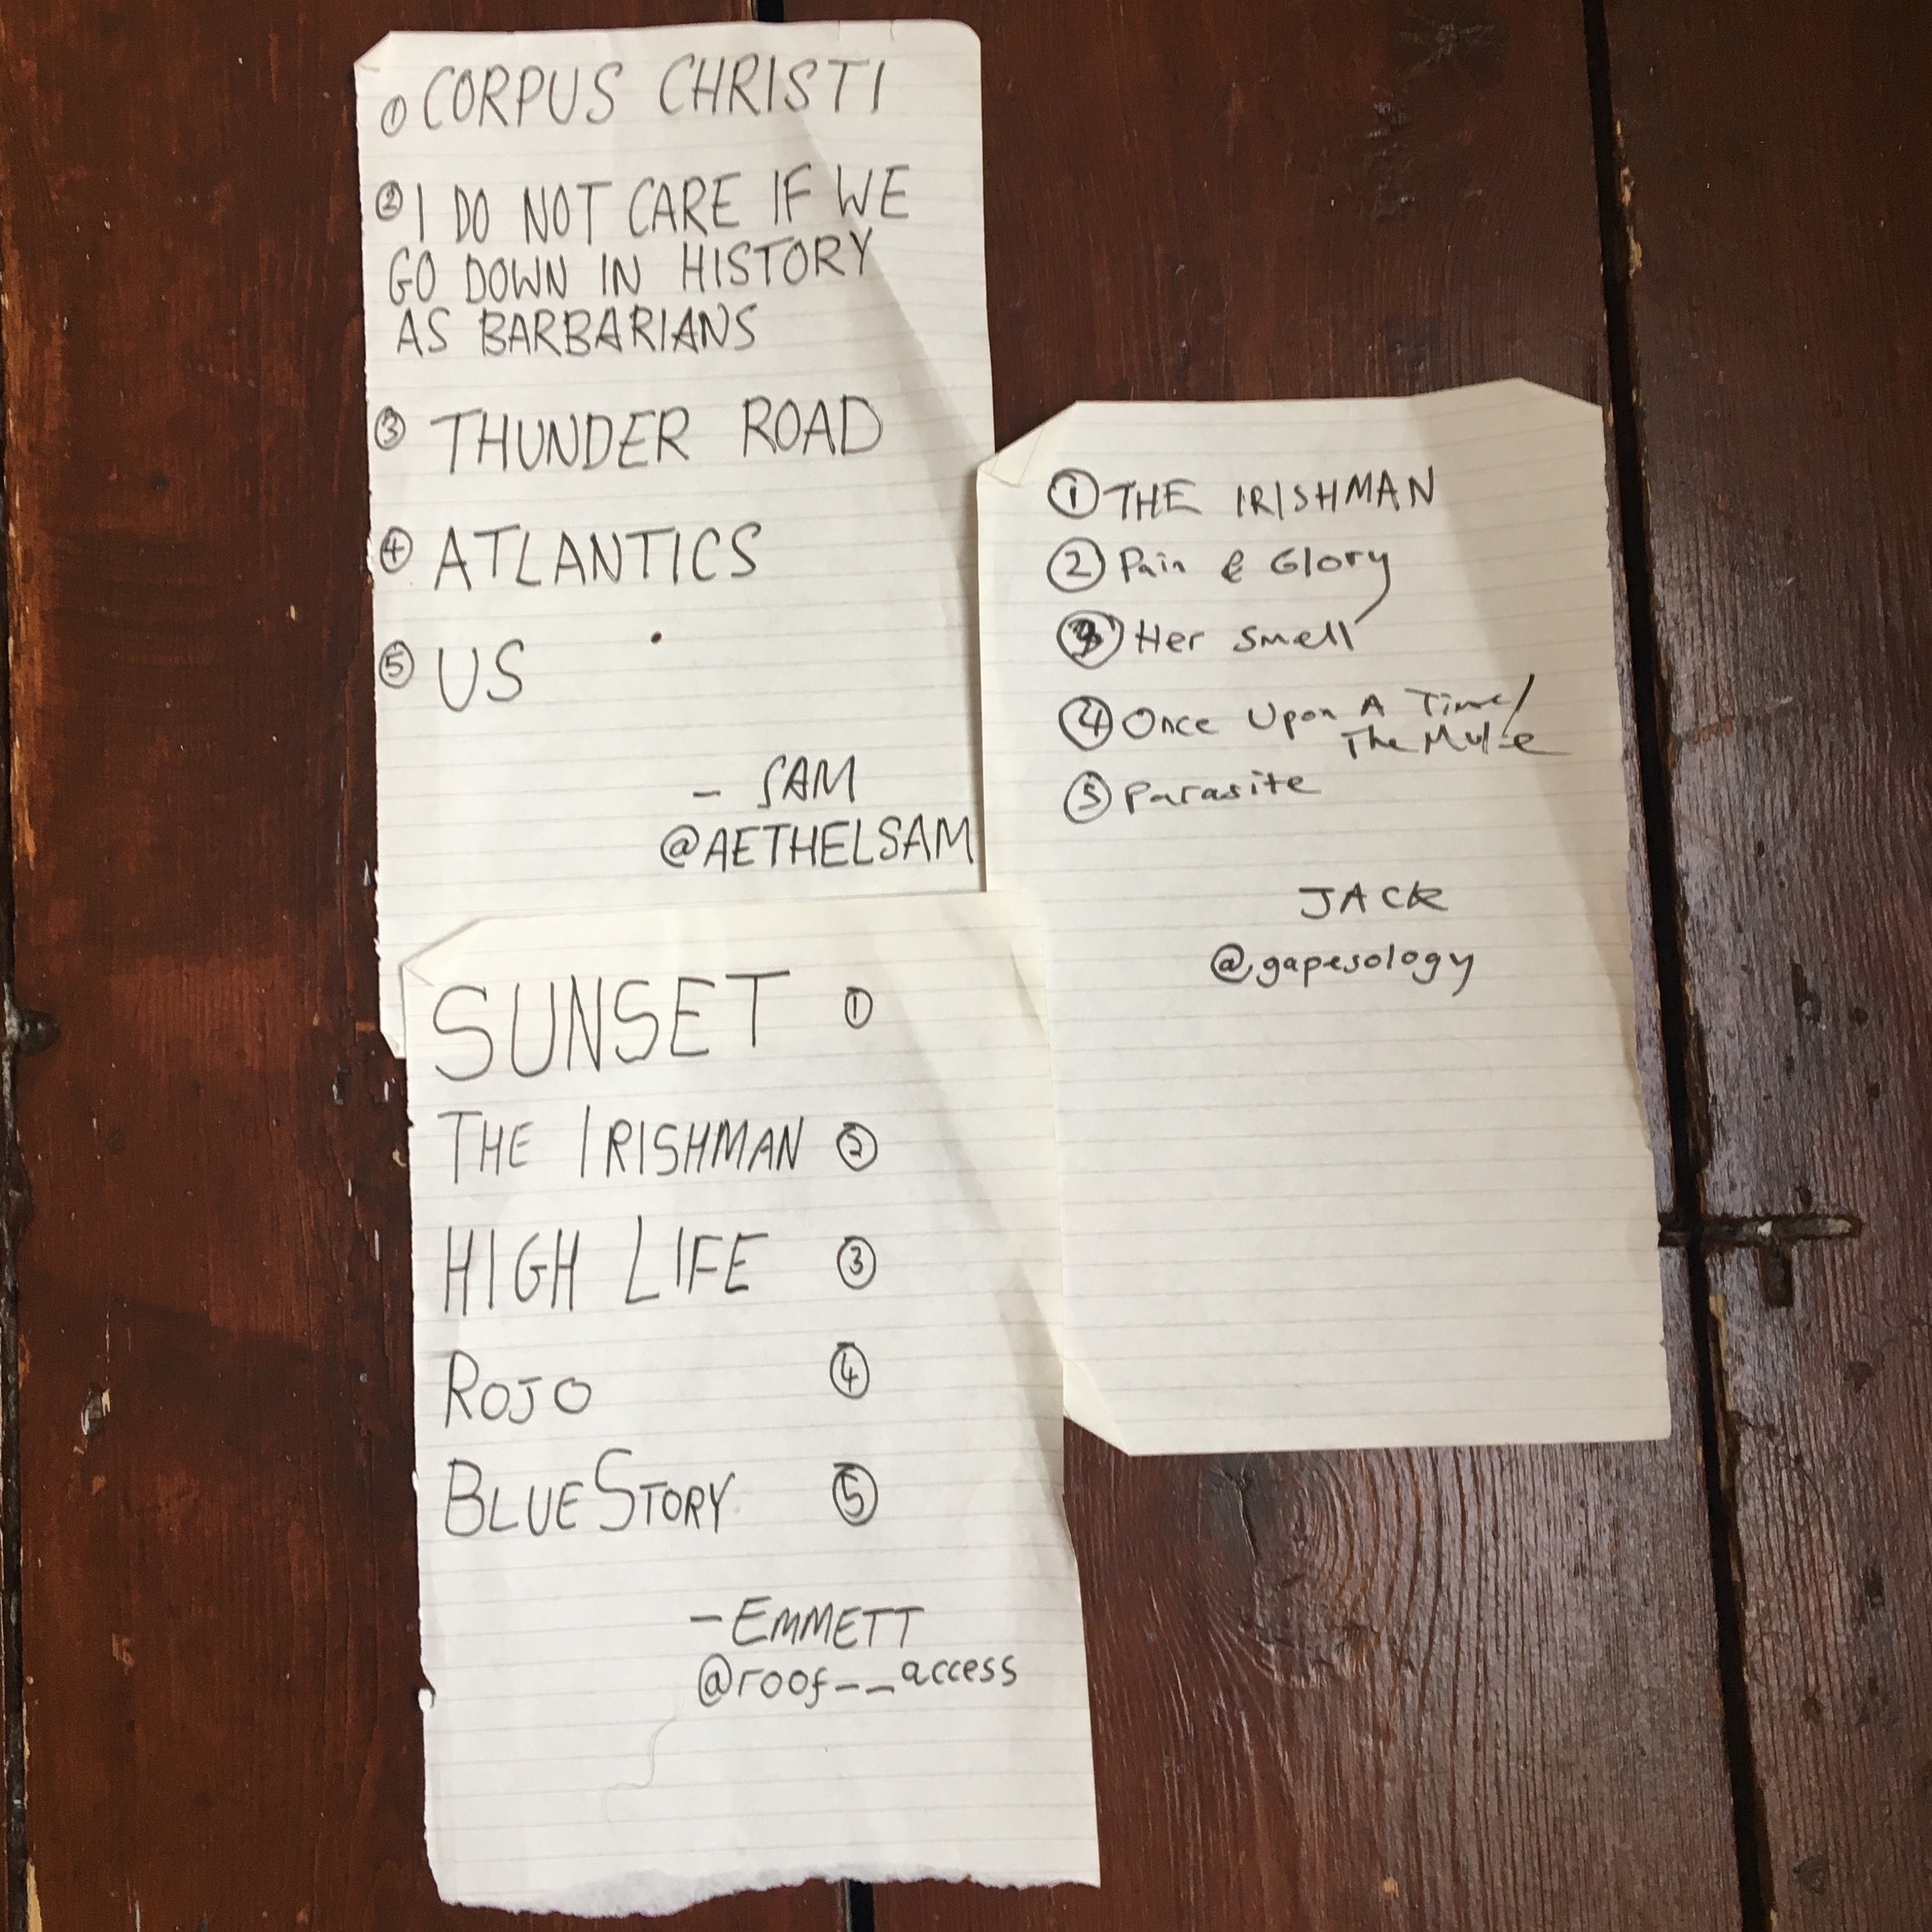 ① CORPUS CHRISTI
② I DO NOT CARE IF WE
GO DOWN IN HISTORY
AS BARBARIANS
③ THUNDER ROAD
④ ATLANTICS
⑤ US
— SAM
@AETHELSAM
① THE IRISHMAN
② Pain & Glory
③ Her Smell
④ Once Upon A Time/
The Mule
⑤ Parasite
JACK
@gapesology
SUNSET ①
THE IRISHMAN ②
HIGH LIFE ③
ROJO ④
BLUE STORY ⑤
— EMMETT
@roof__access